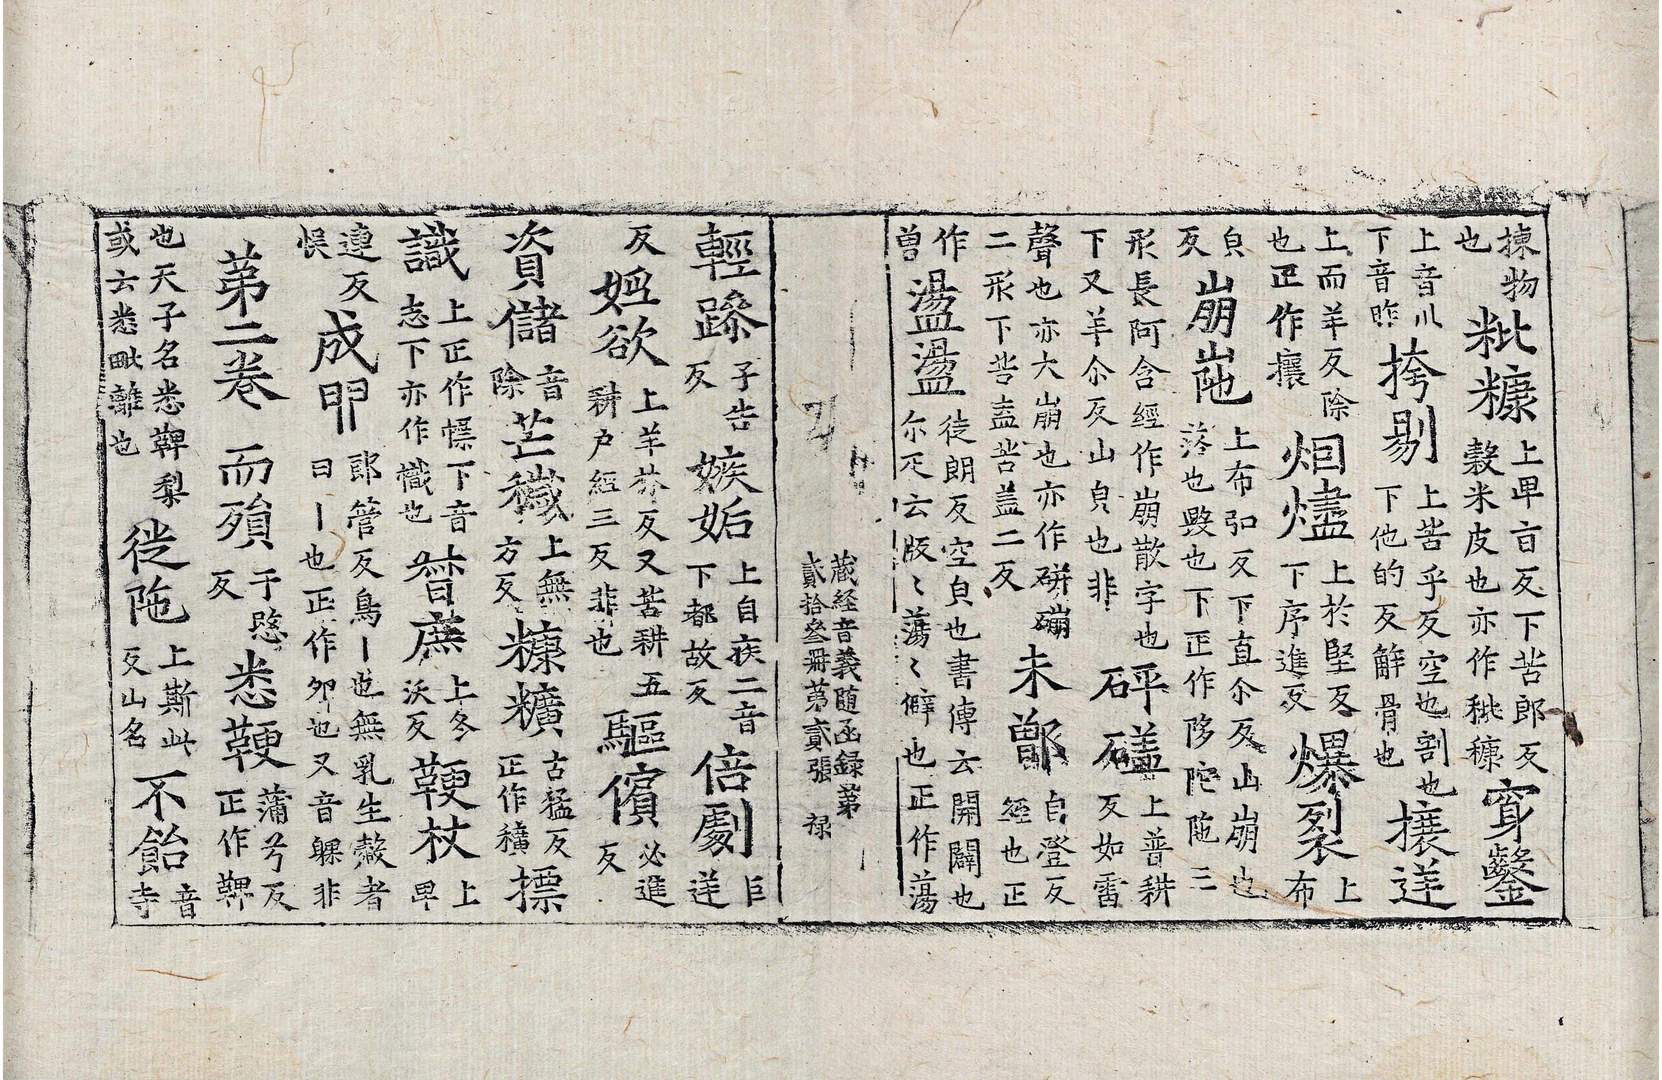 揀物也 粃糠 上卑盲反下苦郎反穀米皮也亦作秕穅 穿鑿
上音川下音昨 挎剔 上苦乎反空也割也下他的反解骨也 攘送
上而羊反除也正作攘 烟燼 上於堅反下序進反 爆裂 上布
皃反 崩㟅 上布弘反下直尒反山崩也落也毀也下正作陊陁陁三
形長阿含經作崩散字也下又羊尒反山皃也非 砰磕 上普耕反如雷
聲也亦大崩也亦作硑磞二形下苦盍苦盖二反 未鄫 自登反經也正
作曽 盪盪 徒朗反空皃也書傳云開闢也尔疋云版〻蕩〻僻也正作蕩
藏経音義随函録第
貳拾叁冊第貳張 禄
輕躁 子告反 嫉妬 上自疾二音下都故反 倍劇 巨逆
反 婬欲 上羊林反又苦耕五耕户經三反非也 驅儐 必進反
資儲 音除 芒穢 上無方反 糠穬 古猛反正作穬 摽
識 上正作幖下音志下亦作幟也 昝庶 上冬沃反 鞕杖 上卑
連反悮 成卵 郎管反鳥丨也無乳生㲉者曰丨也正作卵也又音躶非
第二卷 而殞 于愍反 悉鞕 蒲兮反正作鞞
也天子名悉鞞梨或云悉毗離也 徙陁 上斯此反山名 不飴 音寺